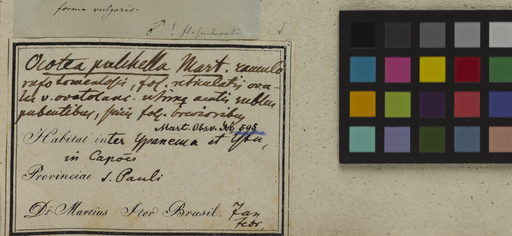 forma vulgaris.
♂ !
Ocotea pulchella Mart. ramulo
rufo tomentosis, fol. reticulatis ova-
lib. v. ovatolanc. utrinq. acutis subtus
pubentibus, fol. brevioribus
Mart. Obsv. No 598
Habitat inter Ypanema et Ytu,
in Capoës
Provinciae S. Pauli
Dr Martius Iter Brasil. Jan
Febr.